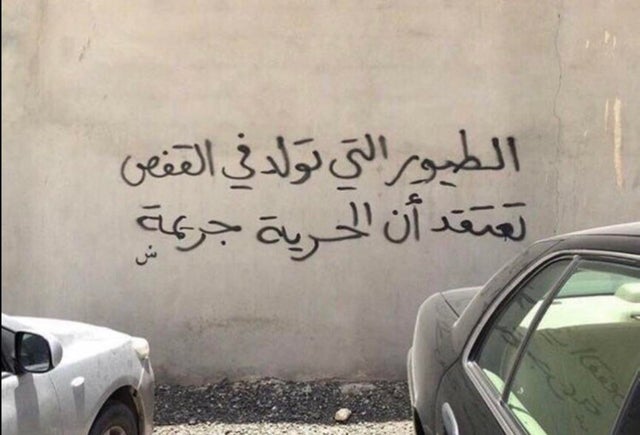 الطيور التي تولد في القفص
تعتقد أن الحرية جريمة
ش